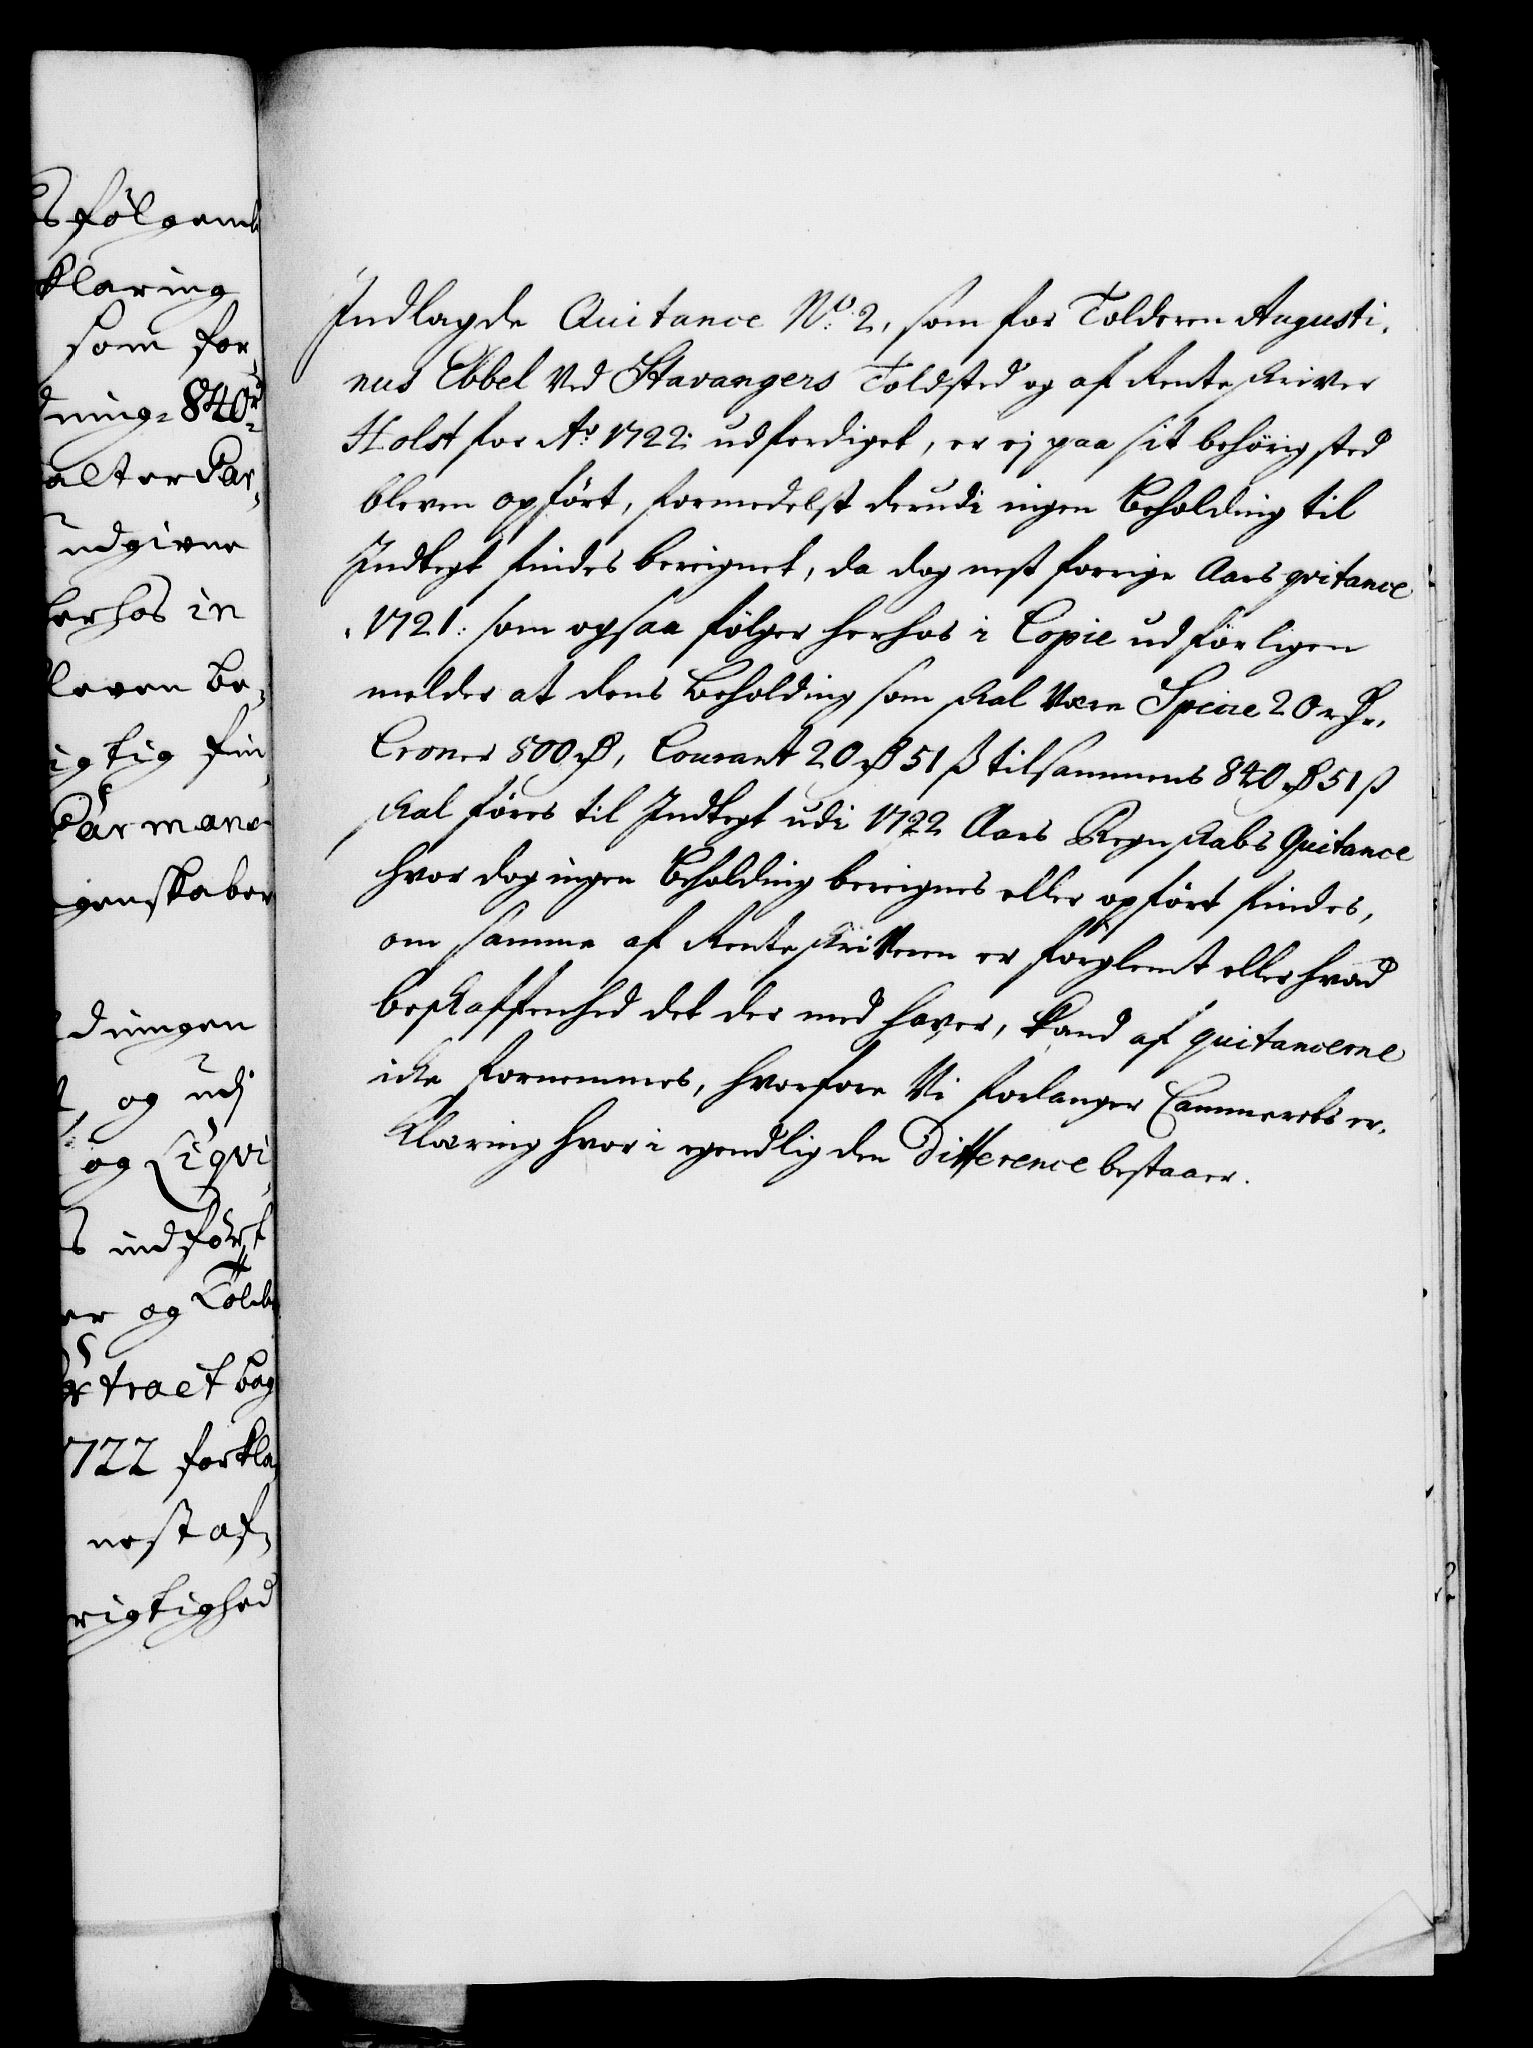 s følgende
klaring
som for-
dning= 840 rd
alter Par-
udgivne
herhos in
leven be-
igtig fin-
Parmane
genskaber
dningen
og udj
og Liqvi-
s indfört
er og Told
Extract bog
1722 forkla
nest af-
rigtighed
Indlagde Quitance No. 2, som for Tolderen Augusti-
nus Ebbel ved Stavangers Toldsted og af Renteskriver
Holst for Ao. 1722: udferdiget, er ej paa sit behörig sted
bleven opfört, formedelst derudi ingen Beholding til
Indtegt findes beregnet, da dog nest forrige Aars qvitance
1721: som ogsaa fölger herhos i Copie udförligen
melder at dens beholding som skal være Specie 20 rdr.
Croner 800 rd, Courant 20 rd 51 ß tilsammens 840 rd 51 ß
skal föres til Indtegt udi 1722 Aars Regnskabs Quitance
hvor dog ingen Beholding bereignes eller opfört findes,
om samme af Renteskriveren er forglemt eller hvad
beskaffenhed det der med haver, kand af quitancerne
icke fornemmes, hvorfore Vi forlanger Cammerets er-
klæring hvori egendlig den Difference bestaaer.